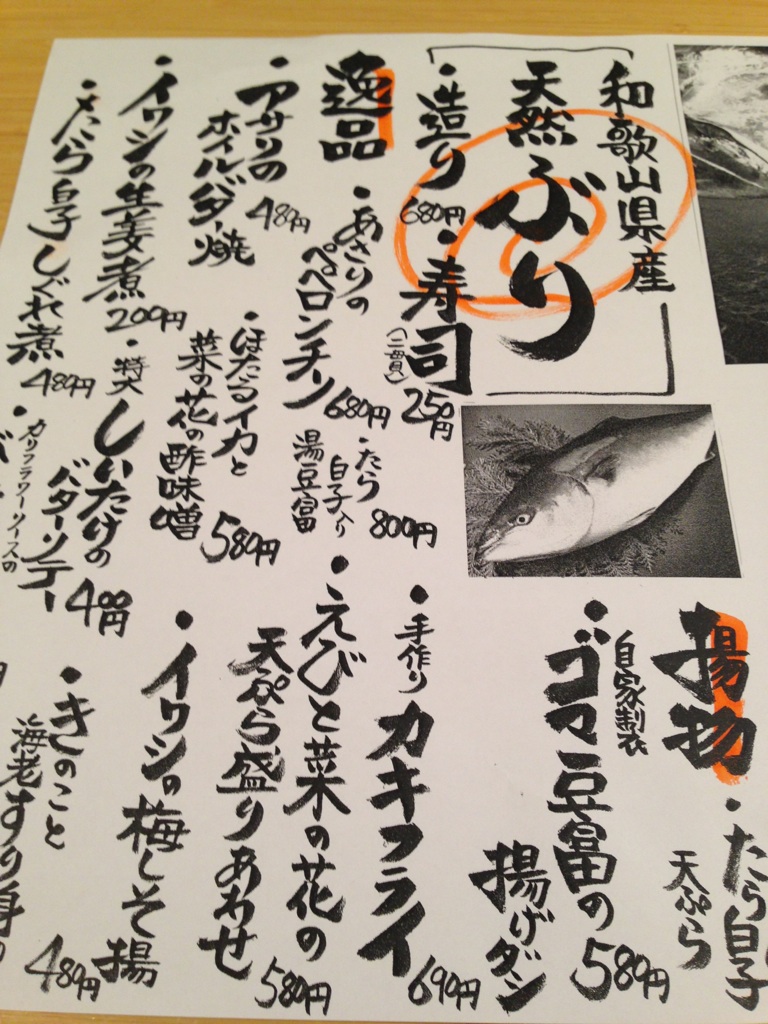 和歌山県産
天然ぶり
・造り
680円
・寿司
(二貫)
250円
逸品
・あさりの
ペペロンチノ
680円
・たら
白子入り
湯豆富
800円
・アサリの
ホイルバター焼
480円
・ほたるイカと
菜の花の酢味噌
580円
・イワシの生姜煮
200円
・特大
しいたけの
バターソテー
400円
・たら白子しぐれ煮
480円
・カリフラワーソースの
揚物
・たら白子
天ぷら
・自家製
ゴマ豆富の
揚げダシ
580円
・手作り
カキフライ
690円
・えびと菜の花の
天ぷら盛りあわせ
580円
・イワシの梅しそ揚
480円
・きのこと
海老すり身の